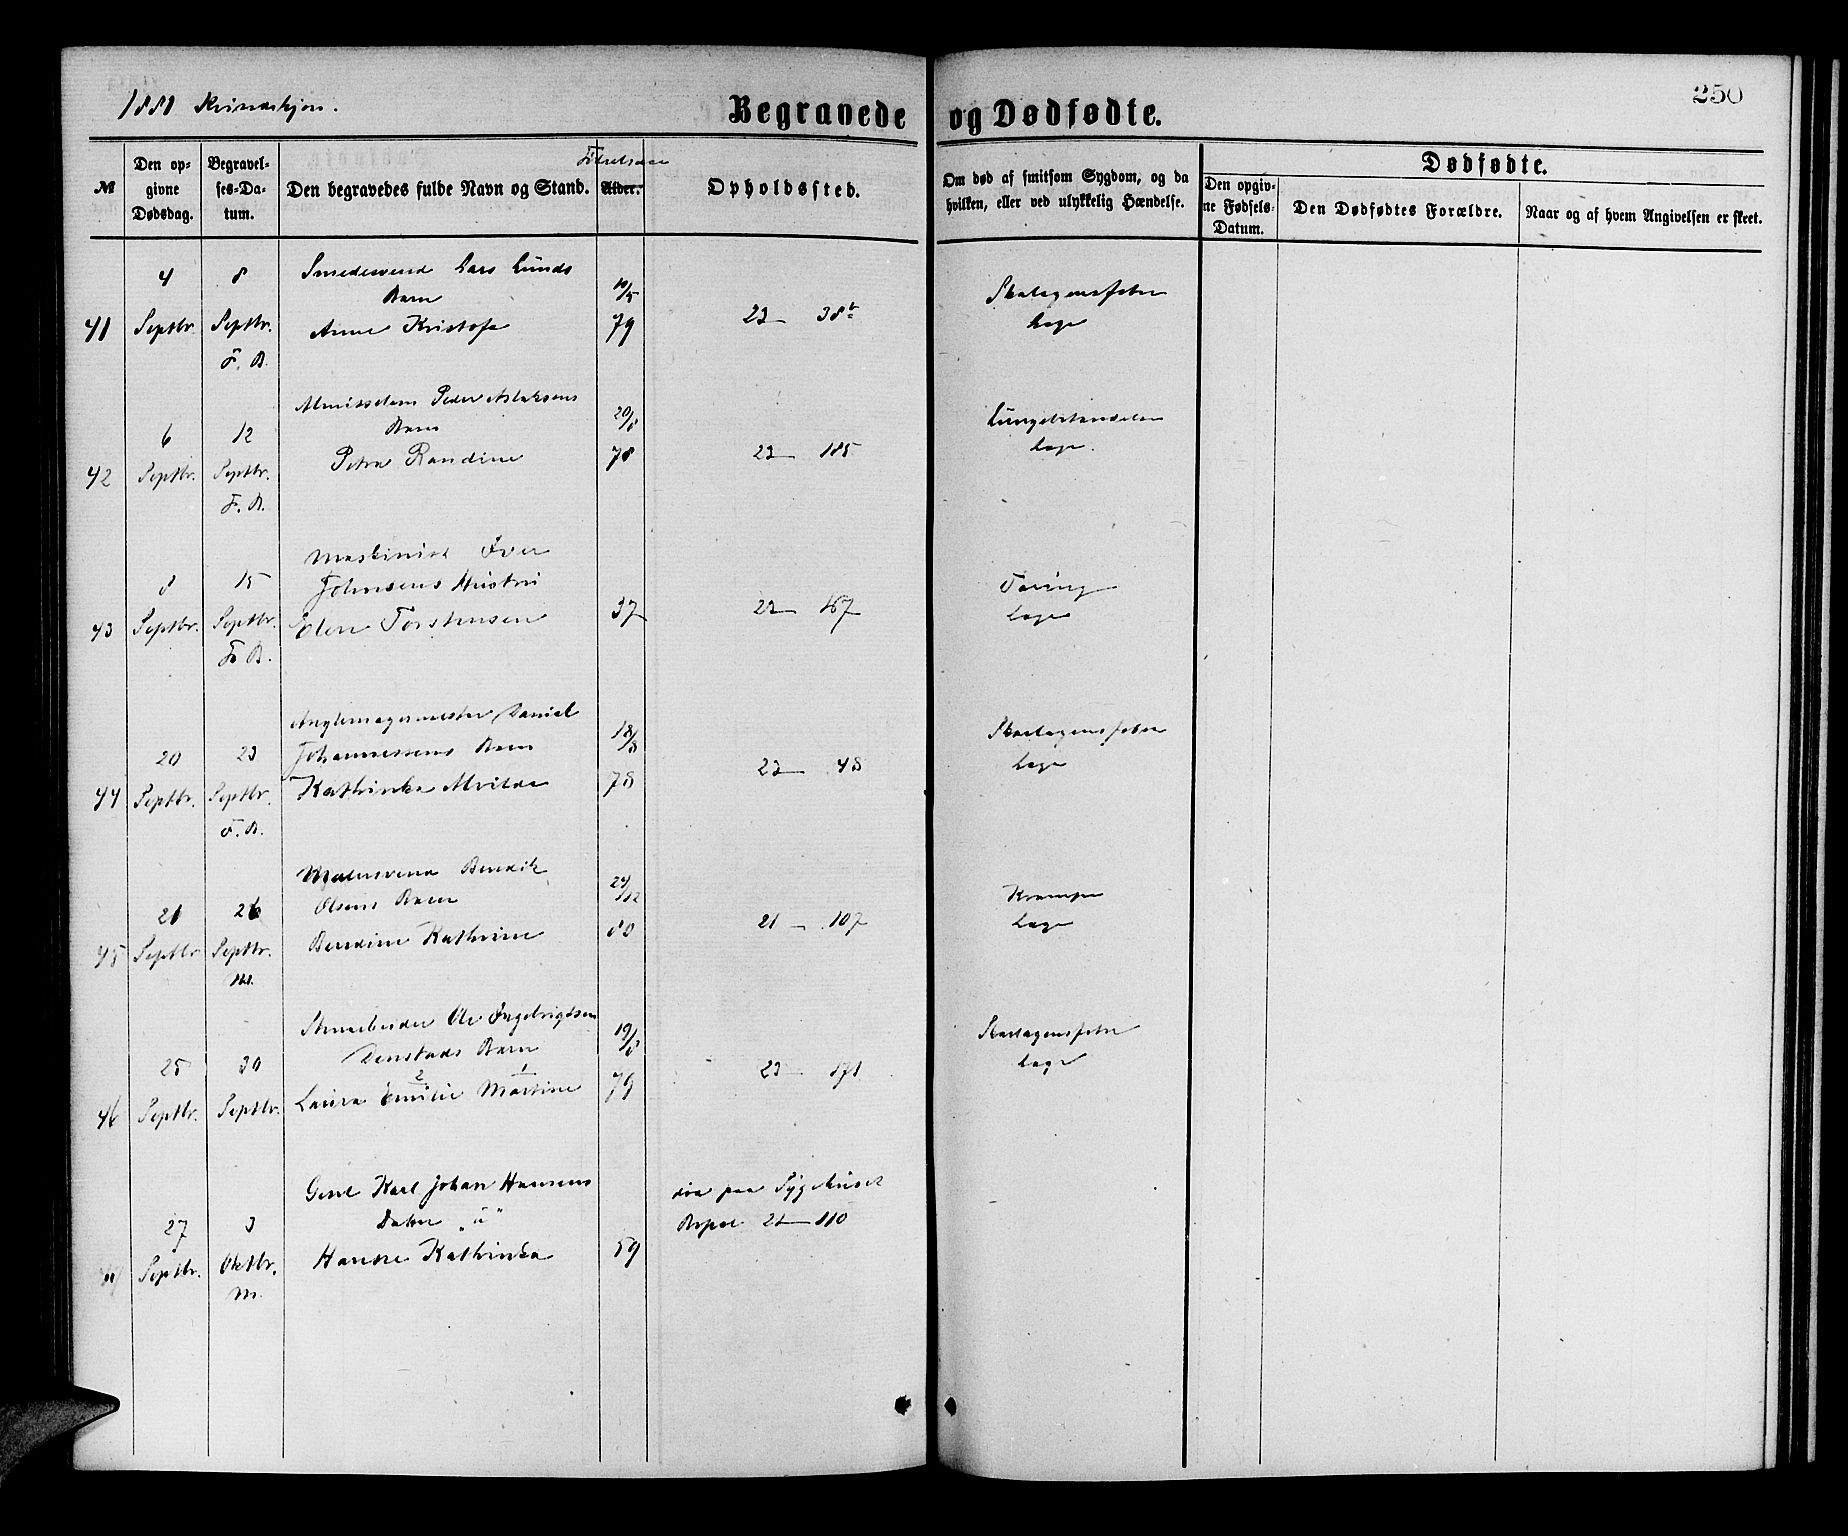 1881 Kvindekjøn.
Begravede og Dødfødte.
250
№
Den opgivne Dødsdag.
Begravelses-Datum.
Den begravedes fulde Navn og Stand.
Alder.
Opholdssted.
Om død af smitsom Sygdom, og da hvilken, eller ved ulykkelig Hændelse.
Dødfødte.
Den opgivne Fødsels-Datum.
Den Dødfødtes Forældre.
Naar og af hvem Angivelsen er skeet.
4 8 Smedesvend Lars Lunds
Barn 10/5 Skarlagensfeber
41 Septbr. Septbr. Anne Kristofa 79 23 — 38b Læge
F. B.
Peder Aslaksens
6 12 Barn 20/8
42 Septbr. Septbr. Petra Randine 78 23 — 185 Læge.
F. B.
Maskinist Iver
8 15 Johnsens Hustru Tæring
43 Septbr. Septbr. Elen Torstensen 37 23 — 167 Læge
F. B.
Daniel
20 23 Johannessens Barn 18/8 Skarlagensfeber
44 Septbr. Septbr. Kathinka Alvilde 78 23 — 48 Læge
F. B.
Malersvend Bendik
21 26 Olsens Barn 24/12 Krampe
45 Septbr. Septbr. Bendine Kathrine 80 21 — 107 Læge
M.
Ole Ingebrigtsen
25 30 Denstads Barn 19/8 Skarlagensfeber
2 1
46 Septbr. Septbr. Laura Emilie Martine 79 23 — 171 Læge
Karl Johan Hansens død paa Sygehuset
27 3 Datter „u" 21 — 110
Septbr. Oktbr. Hanne Kathinka 59
M.